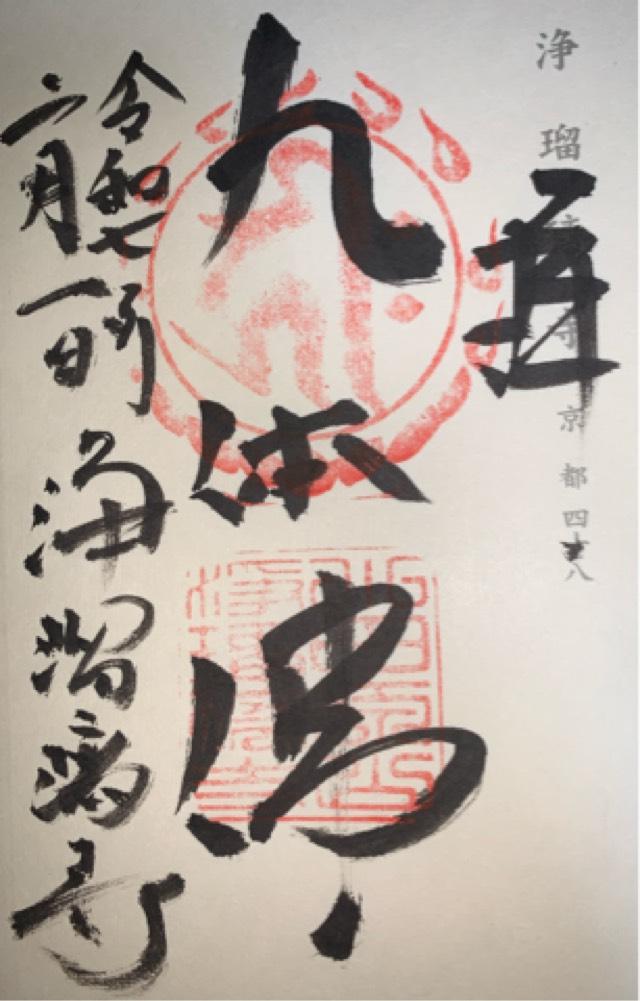 浄瑠璃寺 京都 四十八
九体佛
令和七年
六月一日
浄瑠璃寺